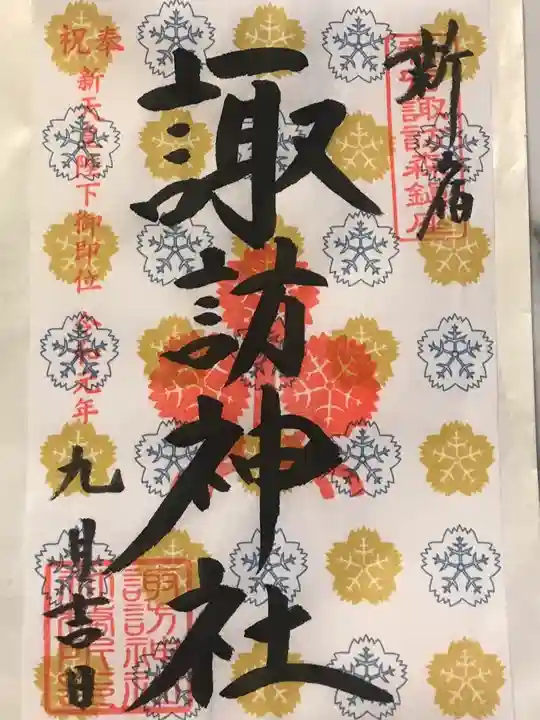 新宿
諏訪神社
奉祝
新天皇陛下御即位 令和元年
九月吉日
諏訪神社